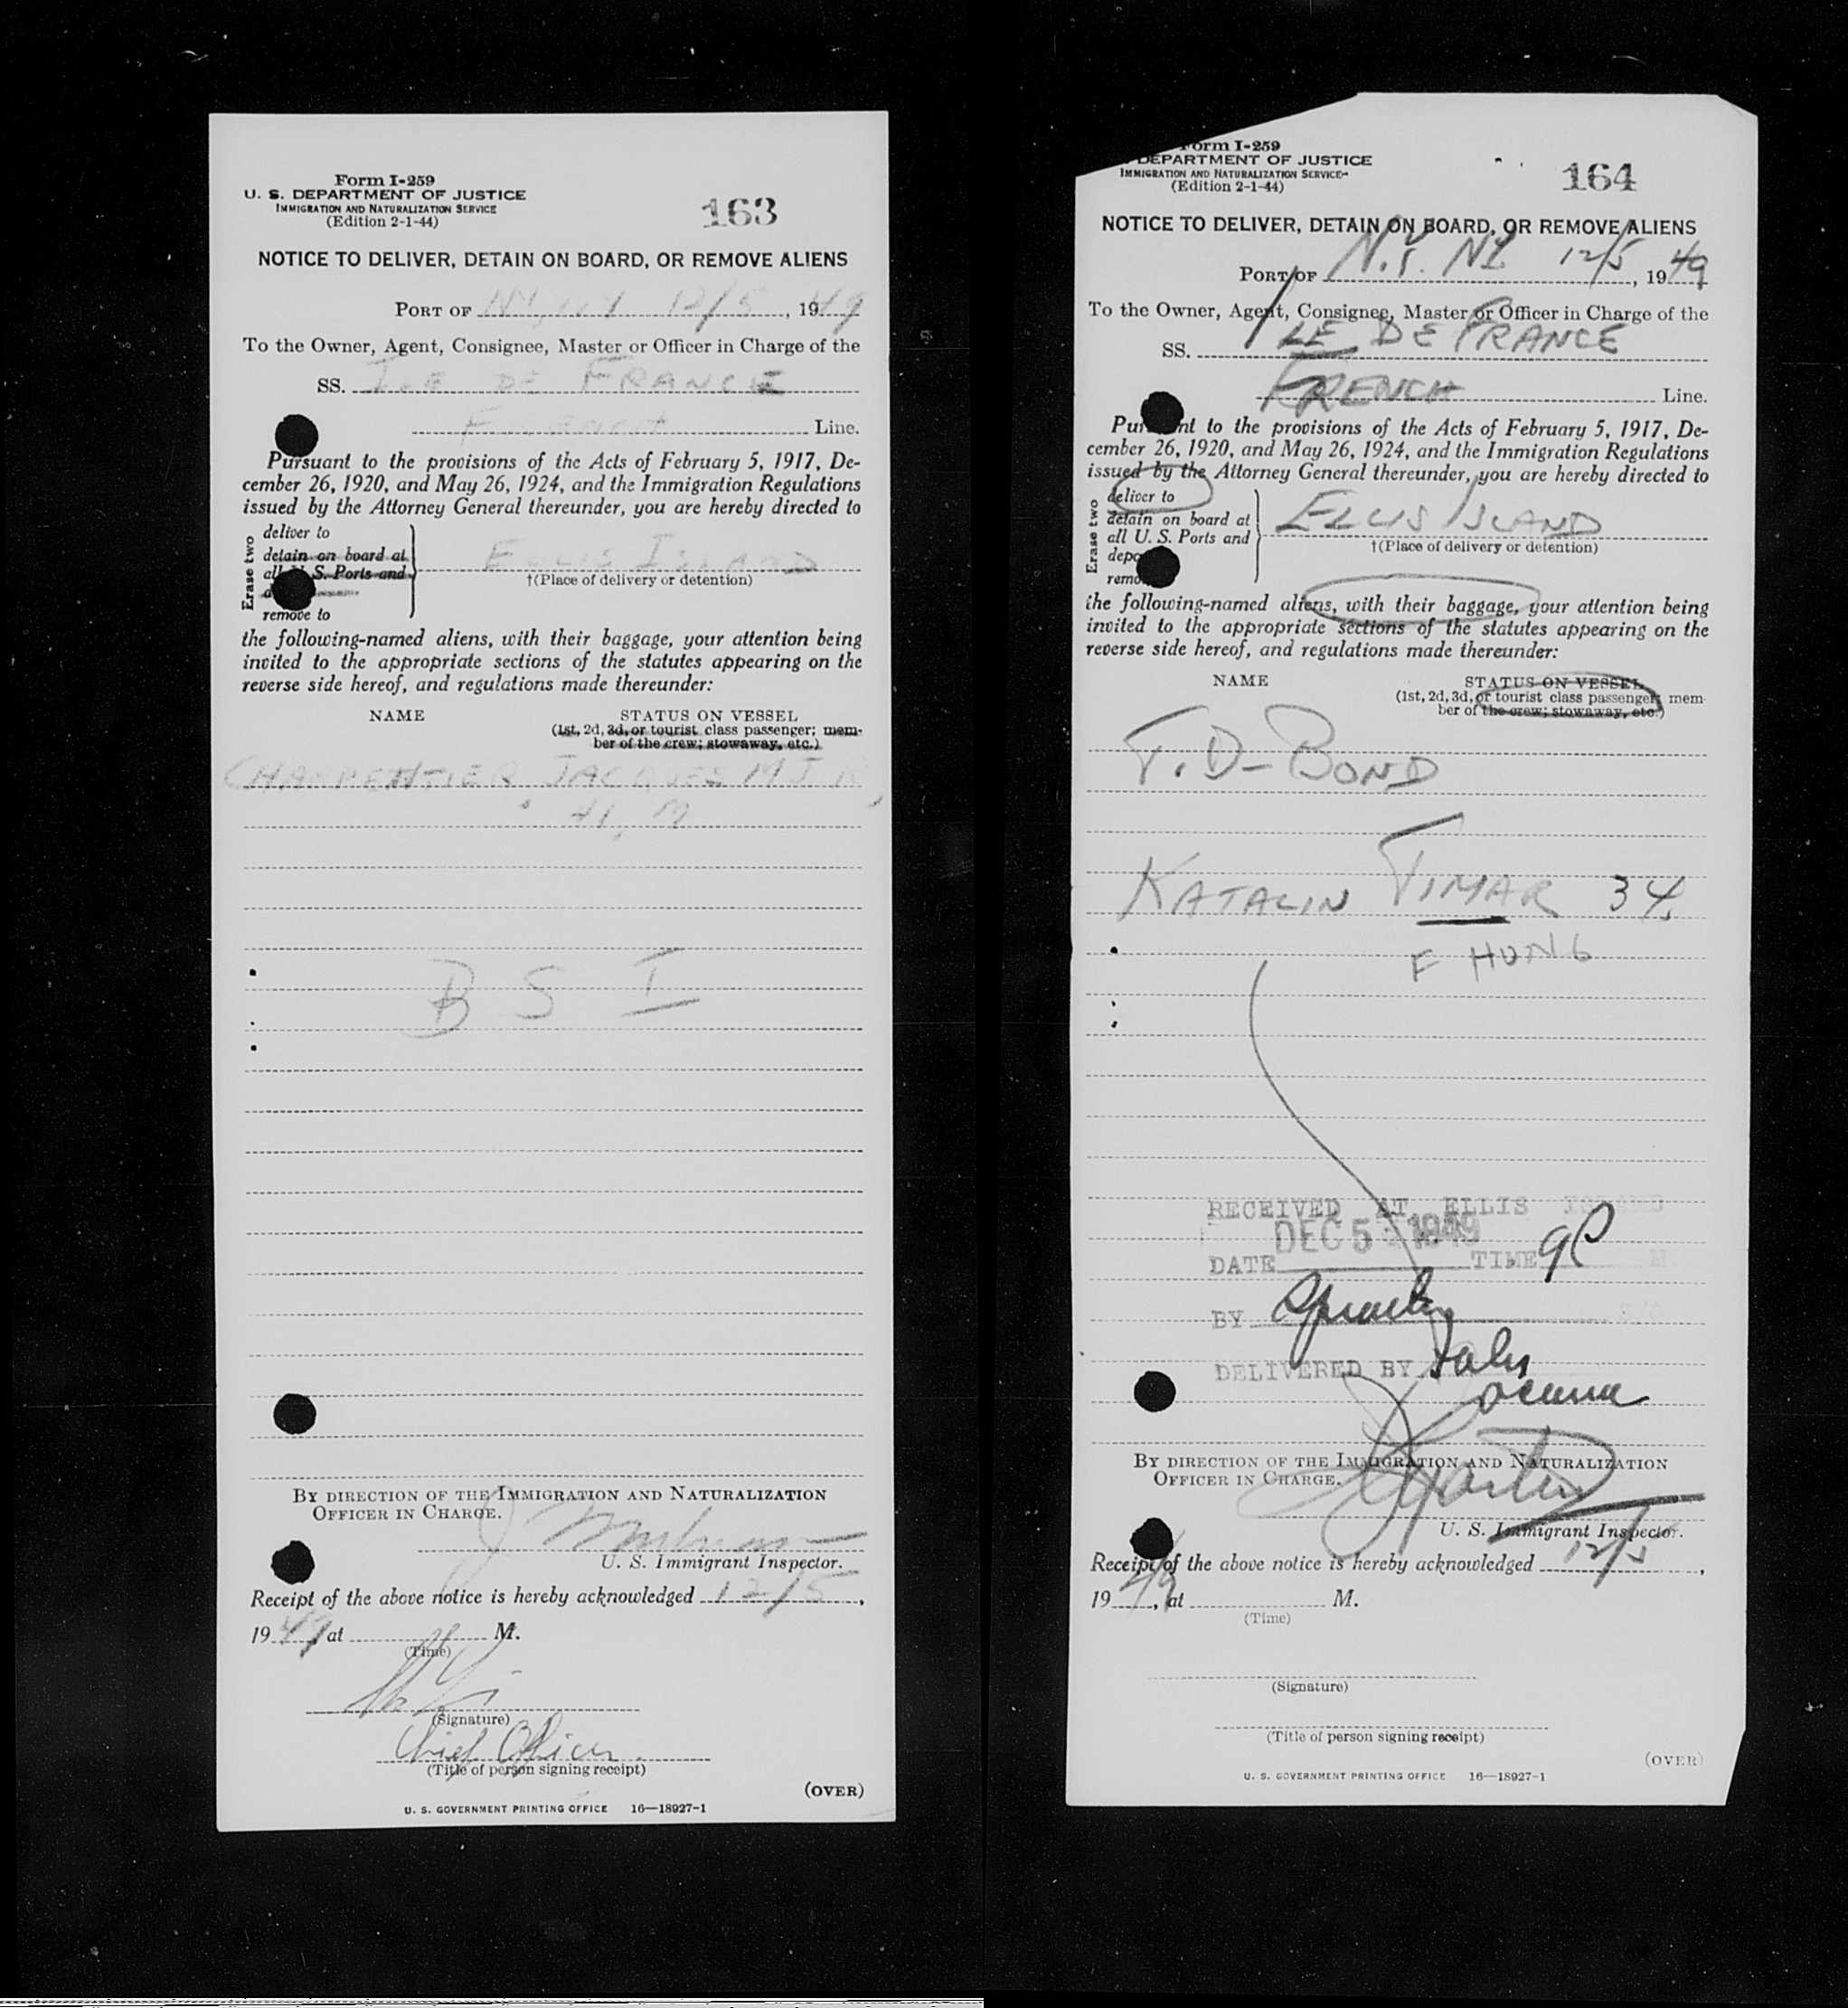 Form I-259
U. S. DEPARTMENT OF JUSTICE
IMMIGRATION AND NATURALIZATION SERVICE
(Edition 2-1-44)
163
NOTICE TO DELIVER, DETAIN ON BOARD, OR REMOVE ALIENS
PORT OF NY, NY 12/5, 1949
To the Owner, Agent, Consignee, Master or Officer in Charge of the
SS. ILE DE FRANCE
FRENCH Line.
Pursuant to the provisions of the Acts of February 5, 1917, De-
cember 26, 1920, and May 26, 1924, and the Immigration Regulations
issued by the Attorney General thereunder, you are hereby directed to
Erase two
deliver to
detain on board at
all U. S. Ports and
remove to
ELLIS ISLAND
†(Place of delivery or detention)
the following-named aliens, with their baggage, your attention being
invited to the appropriate sections of the statutes appearing on the
reverse side hereof, and regulations made thereunder:
NAME STATUS ON VESSEL
(1st, 2d, 3d, or tourist class passenger; mem-
ber of the crew; stowaway, etc.)
CHARPENTIER JACQUES M J R,
41, M
B S I
BY DIRECTION OF THE IMMIGRATION AND NATURALIZATION
OFFICER IN CHARGE.
U. S. Immigrant Inspector.
Receipt of the above notice is hereby acknowledged 12/5,
1949, at M.
(Time)
(Signature)
Chief Officer.
(Title of person signing receipt)
(OVER)
U. S. GOVERNMENT PRINTING OFFICE 16—18927-1
Form I-259
DEPARTMENT OF JUSTICE
IMMIGRATION AND NATURALIZATION SERVICE
(Edition 2-1-44)
164
NOTICE TO DELIVER, DETAIN ON BOARD, OR REMOVE ALIENS
PORT OF N.Y. NY 12/5, 1949
To the Owner, Agent, Consignee, Master or Officer in Charge of the
SS. ILE DE FRANCE
FRENCH Line.
Pursuant to the provisions of the Acts of February 5, 1917, De-
cember 26, 1920, and May 26, 1924, and the Immigration Regulations
issued by the Attorney General thereunder, you are hereby directed to
Erase two
deliver to
detain on board at
all U. S. Ports and
depo
remo
ELLIS ISLAND
†(Place of delivery or detention)
the following-named aliens, with their baggage, your attention being
invited to the appropriate sections of the statutes appearing on the
reverse side hereof, and regulations made thereunder:
NAME STATUS ON VESSEL
(1st, 2d, 3d, or tourist class passenger; mem-
ber of the crew; stowaway, etc.)
T.D-BOND
KATALIN TIMAR 34.
F HUNG
RECEIVED AT ELLIS ISLAND
DEC 5 1949
DATE TIME 9P M
BY
DELIVERED BY
BY DIRECTION OF THE IMMIGRATION AND NATURALIZATION
OFFICER IN CHARGE.
U. S. Immigrant Inspector.
Receipt of the above notice is hereby acknowledged 12/5,
1949, at M.
(Time)
(Signature)
(Title of person signing receipt)
(OVER)
U. S. GOVERNMENT PRINTING OFFICE 16—18927-1